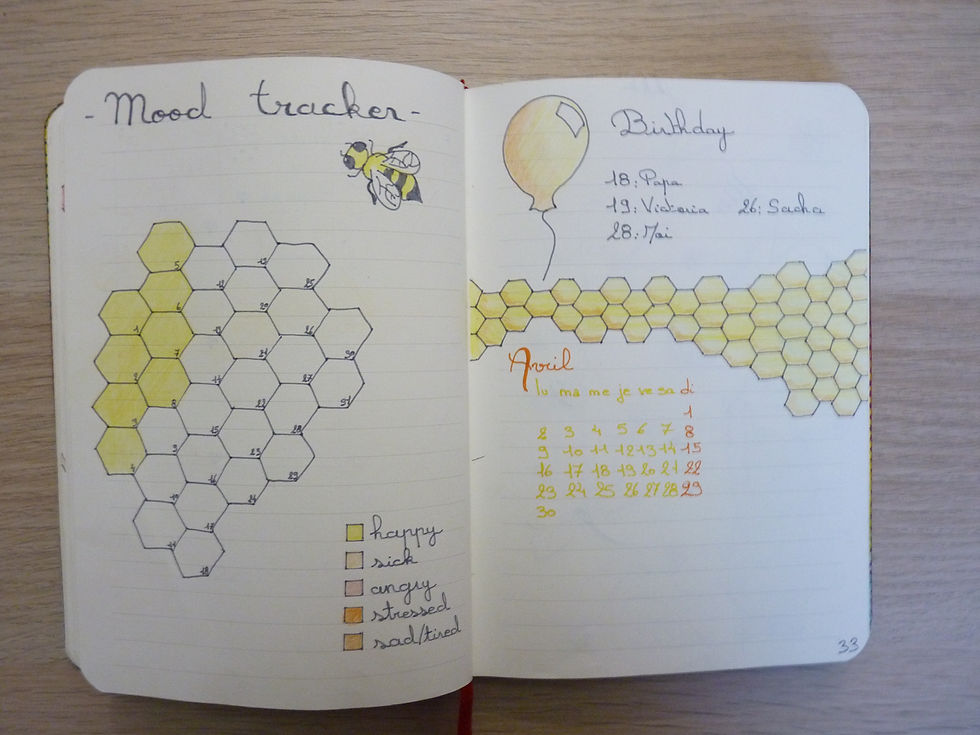 - Mood tracker -
1
2
3
4
5
6
7
8
9
10
11
12
13
14
15
16
17
18
19
20
21
22
23
24
25
26
27
28
29
30
31
happy
sick
angry
stressed
sad/tired
Birthday
18: Papa
19: Victoria 26: Sacha
28: Moi
Avril
lu ma me je ve sa di
1
2 3 4 5 6 7 8
9 10 11 12 13 14 15
16 17 18 19 20 21 22
23 24 25 26 27 28 29
30
33